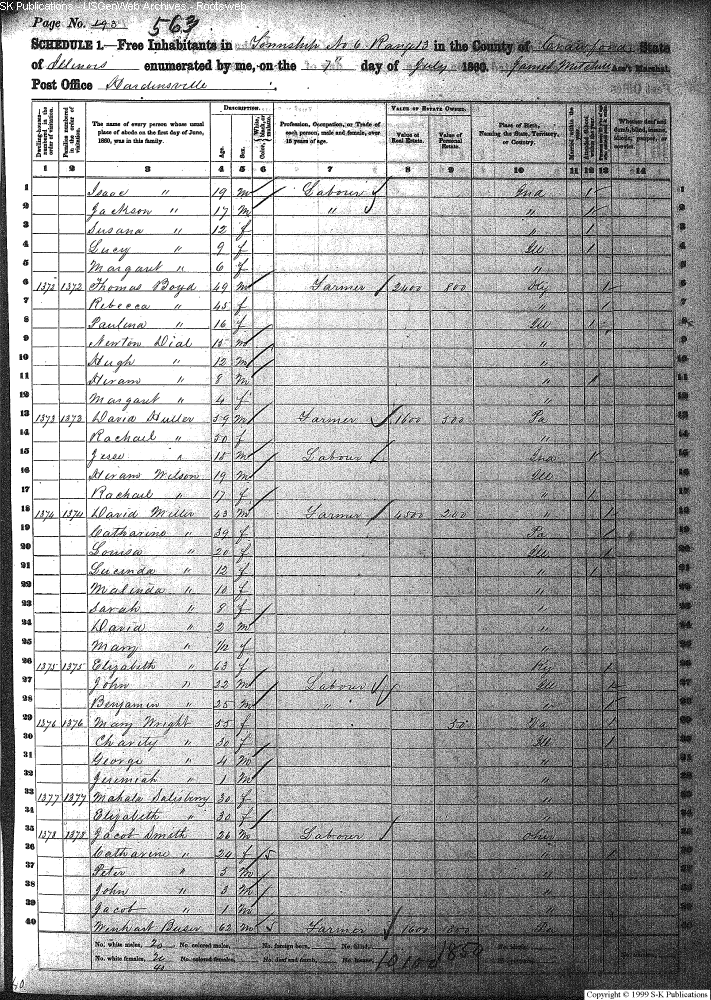 SK Publications - USGenWeb Archives - Rootsweb
Page No. 193 563
SCHEDULE 1.—Free Inhabitants in Township No 6 Range 13 in the County of Crawford State
of Illinois enumerated by me, on the 7th day of July 1860. James Mitchell Ass't Marshal.
Post Office Hardinsville
DESCRIPTION. VALUE OF ESTATE OWNED.
The name of every person whose usual place of abode on the first day of June, 1860, was in this family.
Age. Sex.
Profession, Occupation, or Trade of each person, male and female, over 15 years of age.
Value of Real Estate. Value of Personal Estate.
Place of Birth, Naming the State, Territory, or Country.
1 2 3 4 5 6 7 8 9 10 11 12 13 14
1 Isaac " 19 m Labour Ind 1
2 Jackson " 17 m " " 1
3 Susana " 12 f " 1
4 Lucy " 9 f Ill 1
5 Margaret " 6 f "
6 1372 1372 Thomas Boyd 49 m Farmer 2400 800 Ky 1
7 Rebecca " 45 f " 1
8 Paulina " 16 f Ill 1
9 Newton Dial 15 m "
10 Hugh " 12 m "
11 Hiram " 8 m " 1
12 Margaret " 4 f "
13 1373 1373 David 59 m Farmer 1600 300 Pa
14 Rachael " 50 f "
15 Jesse " 18 m Labour Ind 1
16 Hiram Wilson 19 m Ill
17 Rachael " 17 f " 1
18 1374 1374 David Miller 43 m Farmer 4500 200 1
19 Catharine " 39 f Pa 1
20 Louisa " 20 f Ill 1
21 Lucinda " 12 f " 1
22 Malinda " 10 f "
23 Sarah " 8 f "
24 David " 2 m
25 Mary " 1/12 f "
26 1375 1375 Elizabeth " 63 f Ky 1
27 John " 22 m Labour Ill 1
28 Benjamin " 25 m " " 1
29 1376 1376 Mary Wright 55 f 50 1
30 Charity " 30 f Ill 1
31 George " 4 m "
32 Jeremiah " 1 m "
33 1377 1377 Mahala Salesberry 30 f
34 Elizabeth " 30 f
35 1378 1378 Jacob Smith 26 m Labour
36 Catharine " 24 f 1
37 Peter " 5 m
38 John " 3 m "
39 Jacob " 1 m "
40 62 m Farmer 1600
No. white males, 20 No. colored males, No. foreign born, No. blind,
No. white females, 20 No. colored females, No. deaf and dumb, No. insane, 10100 1850
40
Copyright © 1999 S-K Publications